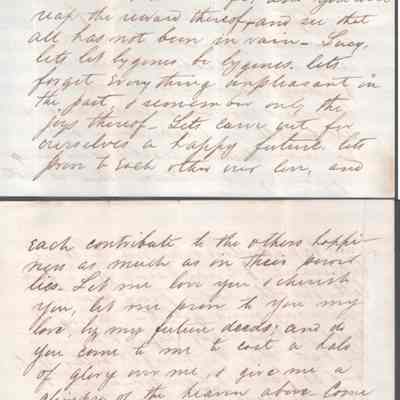 and you will
reap the reward thereof, and see that
all has not been in vain - Lucy,
lets let bygones be bygones. lets
forget everything unpleasant in
the past, & remember only the
joys thereof - Lets carve out for
ourselves a happy future. lets
prove to each other our love, and
each contribute to the others happi-
ness as much as in their power
lies. Let me love you & cherish
you, let me prove to you my
love, by my future deeds; and do
you come to me to cast a halo
of glory over me, & give me a
glimpse of the heaven above. Come